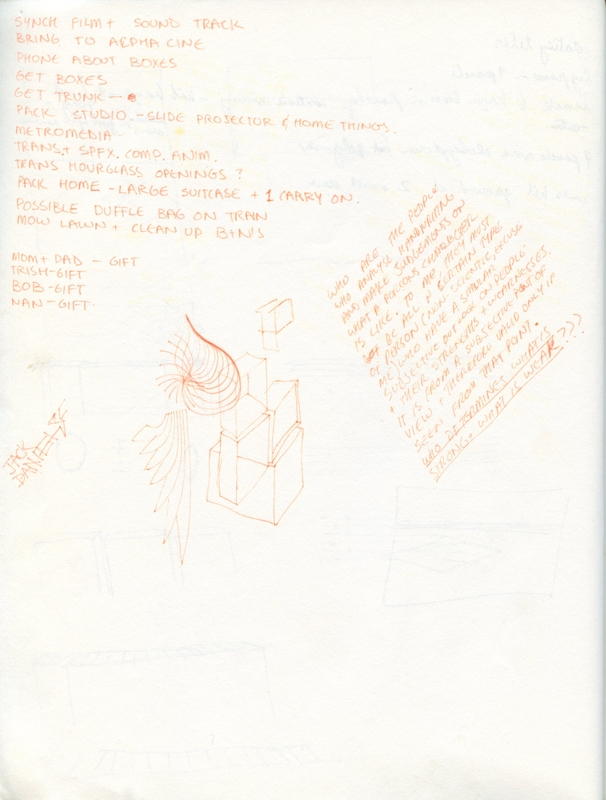 SYNCH FILM + SOUND TRACK
BRING TO ALPHA CINE
PHONE ABOUT BOXES
GET BOXES
GET TRUNK -
PACK STUDIO - SLIDE PROJECTOR & HOME THINGS.
METROMEDIA
TRANS. + SPFX. COMP. ANIM.
TRANS HOURGLASS OPENINGS ?
PACK HOME - LARGE SUITCASE + 1 CARRY ON.
POSSIBLE DUFFLE BAG ON TRAIN
MOW LAWN + CLEAN UP B+N'S
MOM + DAD - GIFT
TRISH - GIFT
BOB - GIFT
NAN - GIFT.
WHO ARE THE PEOPLE
WHO ANALYSE HANDWRITING
AND MAKE JUDGEMENTS ON
WHAT A PERSONS CHARACTER
IS LIKE. TO ME THEY MUST
BE ALL A CERTAIN TYPE
OF PERSON (NON SCIENTIFIC, EXCUSE
ME) WHO HAVE A SIMILAR
SUBJECTIVE OUTLOOK ON PEOPLE
+ THEIR STRENGTHS + WEAKNESSES.
IT IS FROM A SUBJECTIVE POINT OF
VIEW + THEREFORE VALID ONLY IF
SEEN FROM THAT POINT.
WHO DETERMINES WHAT IS
STRONG + WHAT IS WEAK???
JACK